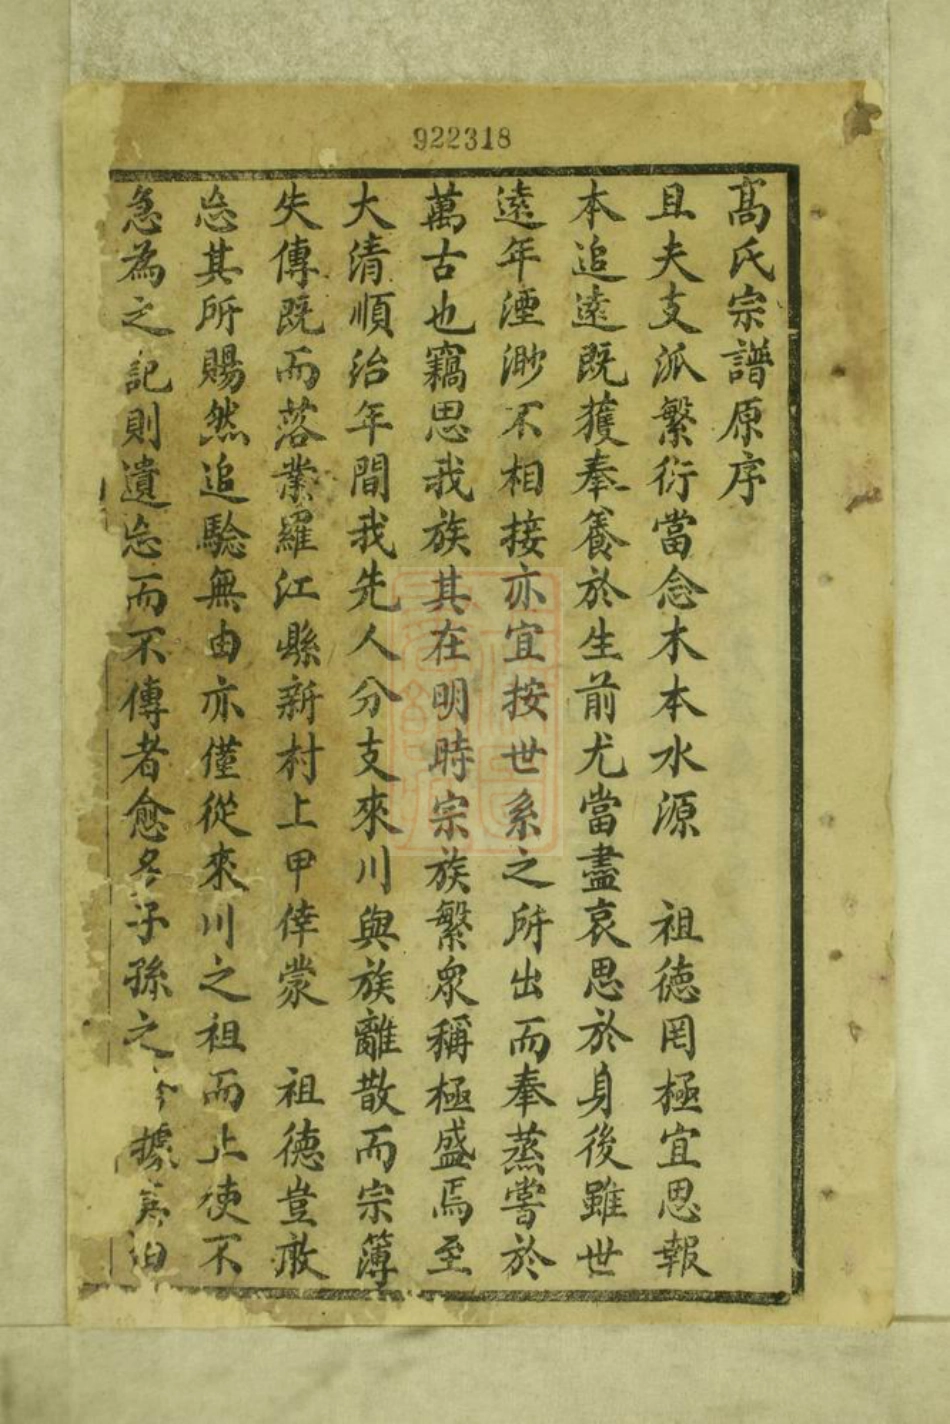 922318
高氏宗譜原序
且夫支派繁衍當念木本水源　祖德罔極宜思報
本追遠既獲奉養於生前尤當盡哀思於身後雖世
遠年湮渺不相接亦宜按世系之所出而奉蒸嘗於
萬古也竊思我族其在明時宗族繁衆稱極盛焉至
大清順治年間我先人分支來川與族離散而宗簿
失傳既而落業羅江縣新村上甲倖蒙　祖德豈敢
忘其所賜然追騐無由亦僅從來川之祖而止使不
急為之記則遺忘而不傳者愈多子孫之據